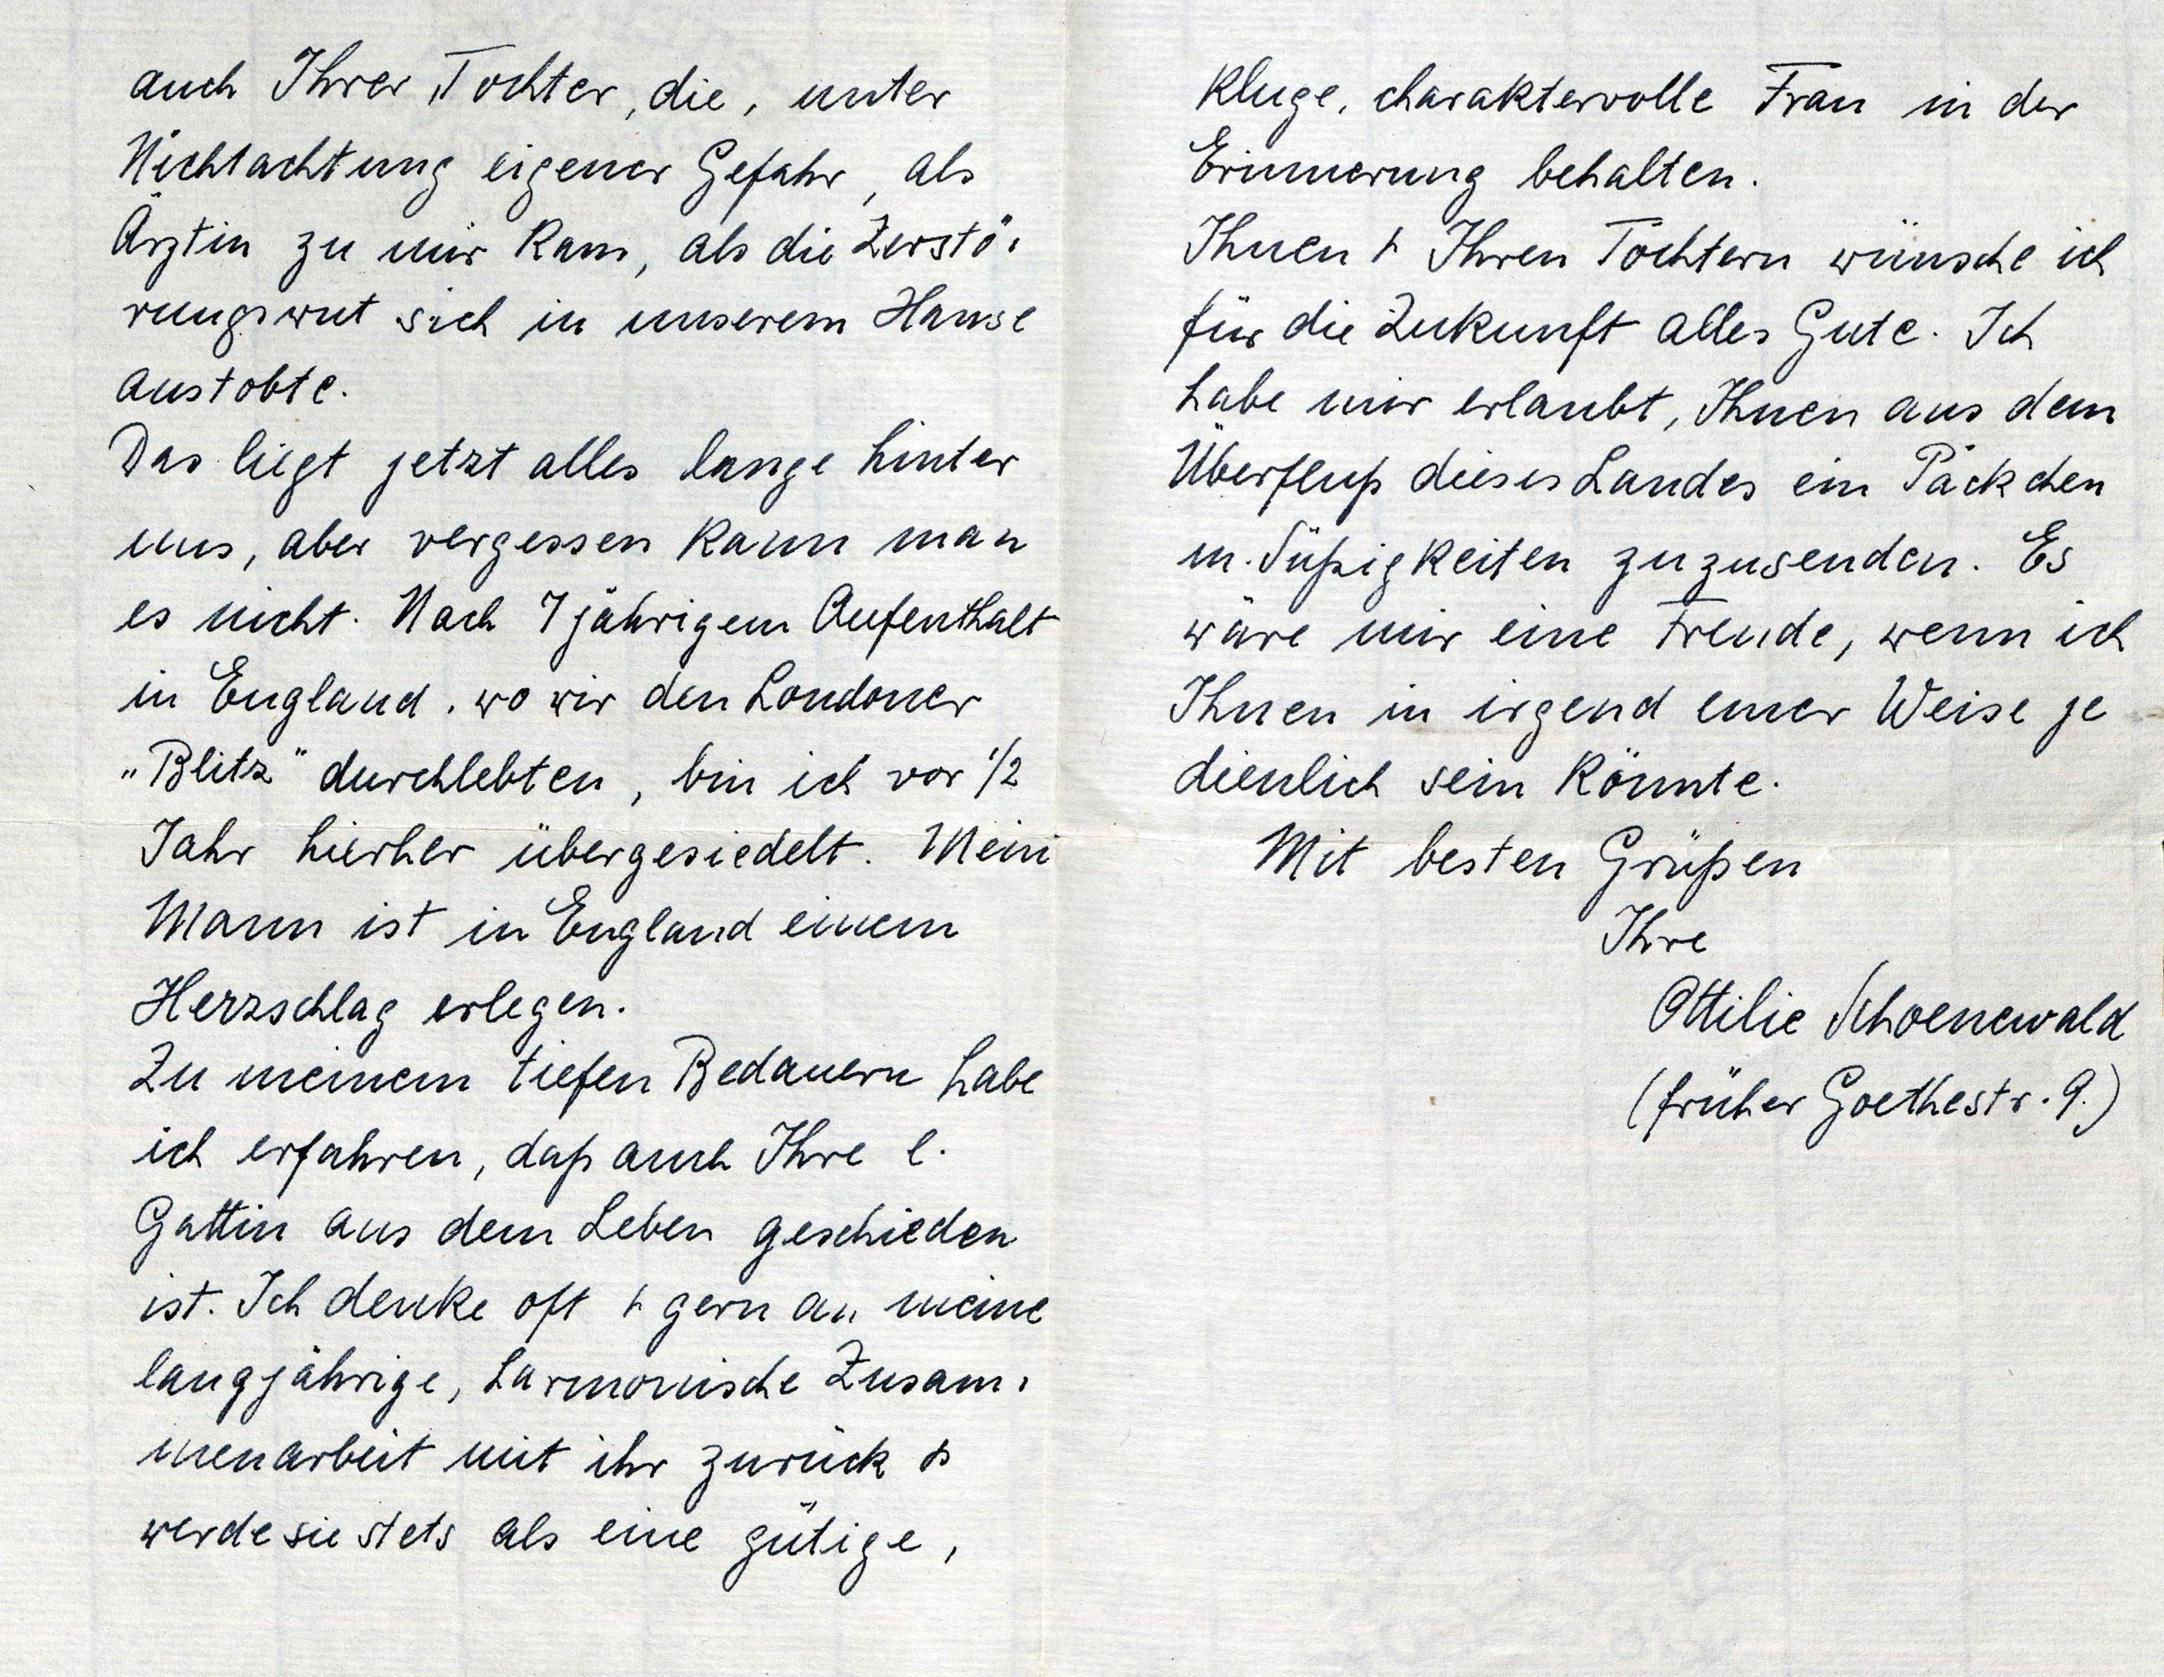 auch Ihrer Tochter, die, unter
Nichtachtung eigener Gefahr, als
Ärztin zu mir kam, als die Zerstö-
rungswut sich in unserem Hause
austobte.
Das liegt jetzt alles lange hinter
uns, aber vergessen kann man
es nicht. Nach 7 jährigem Aufenthalt
in England, wo wir den Londoner
„Blitz" durchlebten, bin ich vor 1/2
Jahr hierher übergesiedelt. Mein
Mann ist in England einem
Herzschlag erlegen.
Zu meinem tiefen Bedauern habe
ich erfahren, daß auch Ihre l.
Gattin aus dem Leben geschieden
ist. Ich denke oft + gern an meine
langjährige, harmonische Zusam-
menarbeit mit ihr zurück +
werde sie stets als eine gütige,
kluge, charaktervolle Frau in der
Erinnerung behalten.
Ihnen + Ihren Töchtern wünsche ich
für die Zukunft alles Gute. Ich
habe mir erlaubt, Ihnen aus dem
Überfluß dieses Landes ein Päckchen
m. Süßigkeiten zuzusenden. Es
wäre mir eine Freude, wenn ich
Ihnen in irgend einer Weise je
dienlich sein könnte.
Mit besten Grüßen
Ihre
Ottilie Schoenewald
(früher Goethestr. 9.)